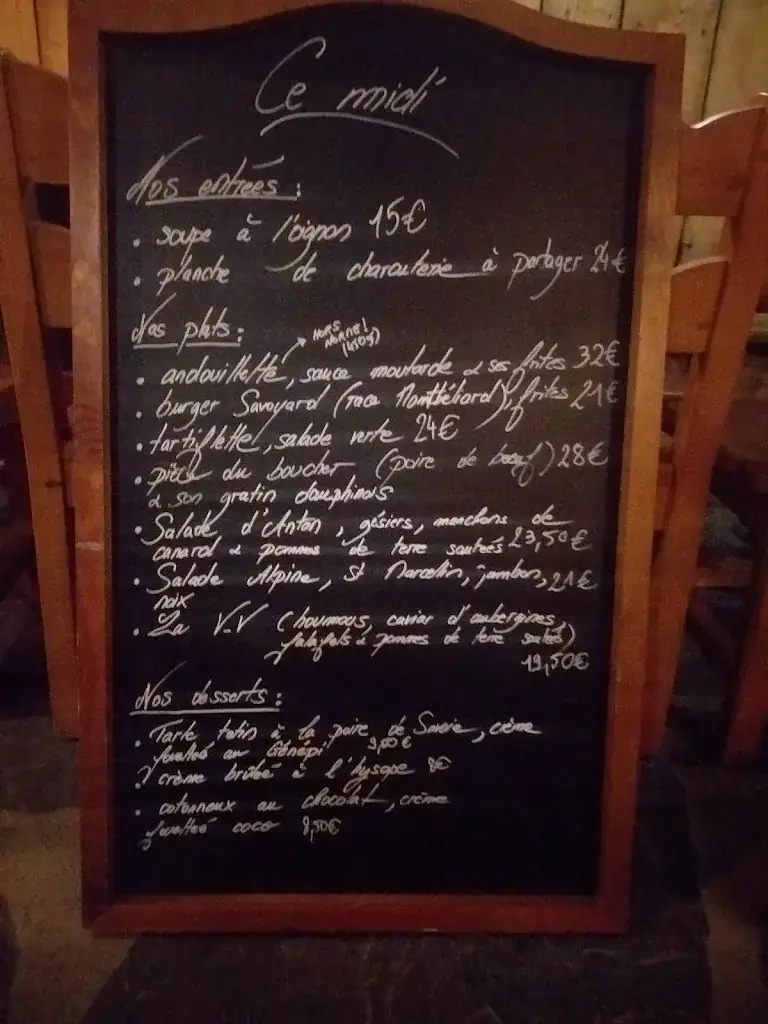 Ce midi
Nos entrées :
. soupe à l'oignon 15€
. planche de charcuterie à partager 24€
Nos plats :
HORS
NORME!
(450g)
. andouillette, sauce moutarde & ses frites 32€
. burger Savoyard (race Montbéliard), frites 21€
. tartiflette, salade verte 24€
. pièce du boucher (poire de bœuf) 28€
& son gratin dauphinois
. Salade d'Antan, gésiers, manchons de
canard & pommes de terre sautées 23,50€
. Salade Alpine, St Marcellin, jambon, 21€
noix
. La V.V (houmous, caviar d'aubergines,
falafels & pommes de terre sautées)
19,50€
Nos desserts :
. Tarte tatin à la poire de Savoie, crème
fouettée au Génépi 9,00€
. crème brûlée à l'hysope 8€
. au chocolat, crème
fouettée coco 8,50€